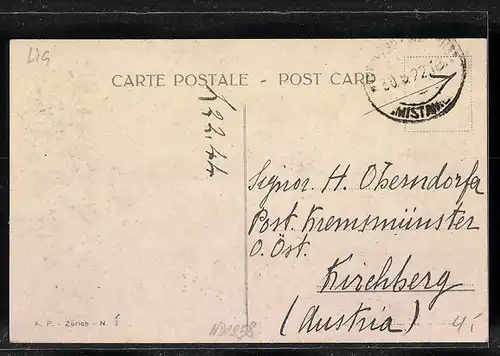 Lig
CARTE POSTALE - POST CARD
MISTA
Signor. H. Oberndorfer
Post. Kremsmünster
O. Öst.
Kirchberg
(Austria)
A. P. - Zürich - N.
4.-